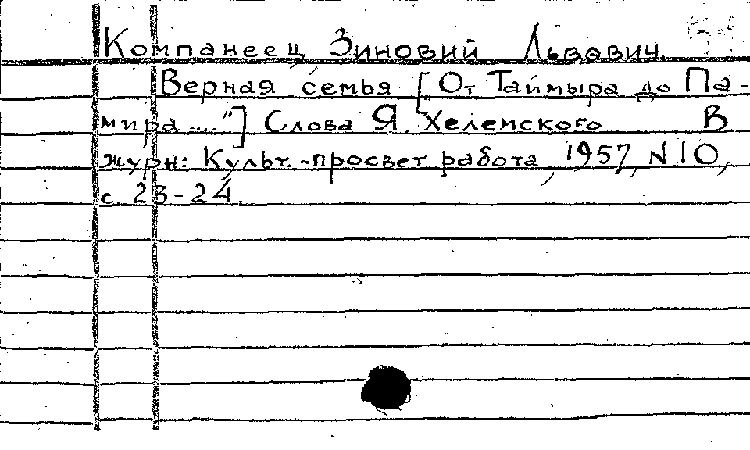 Компанеец Зиновий Львович
Верная семья [От Таймыра до Па-
мира..."] Слова Я. Хелемского В
журн: Культ.-просвет работа, 1957, N 10,
с 23-24.